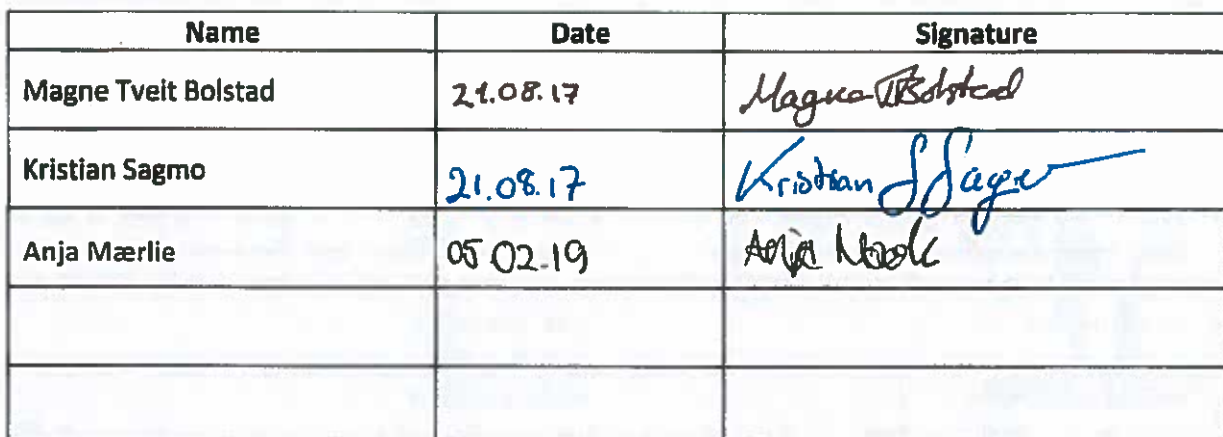 Name Date Signature
Magne Tveit Bolstad 21.08.17 Magne TBolstad
Kristian Sagmo 21.08.17 Kristian S Sagmo
Anja Mærlie 05.02.19 Anja